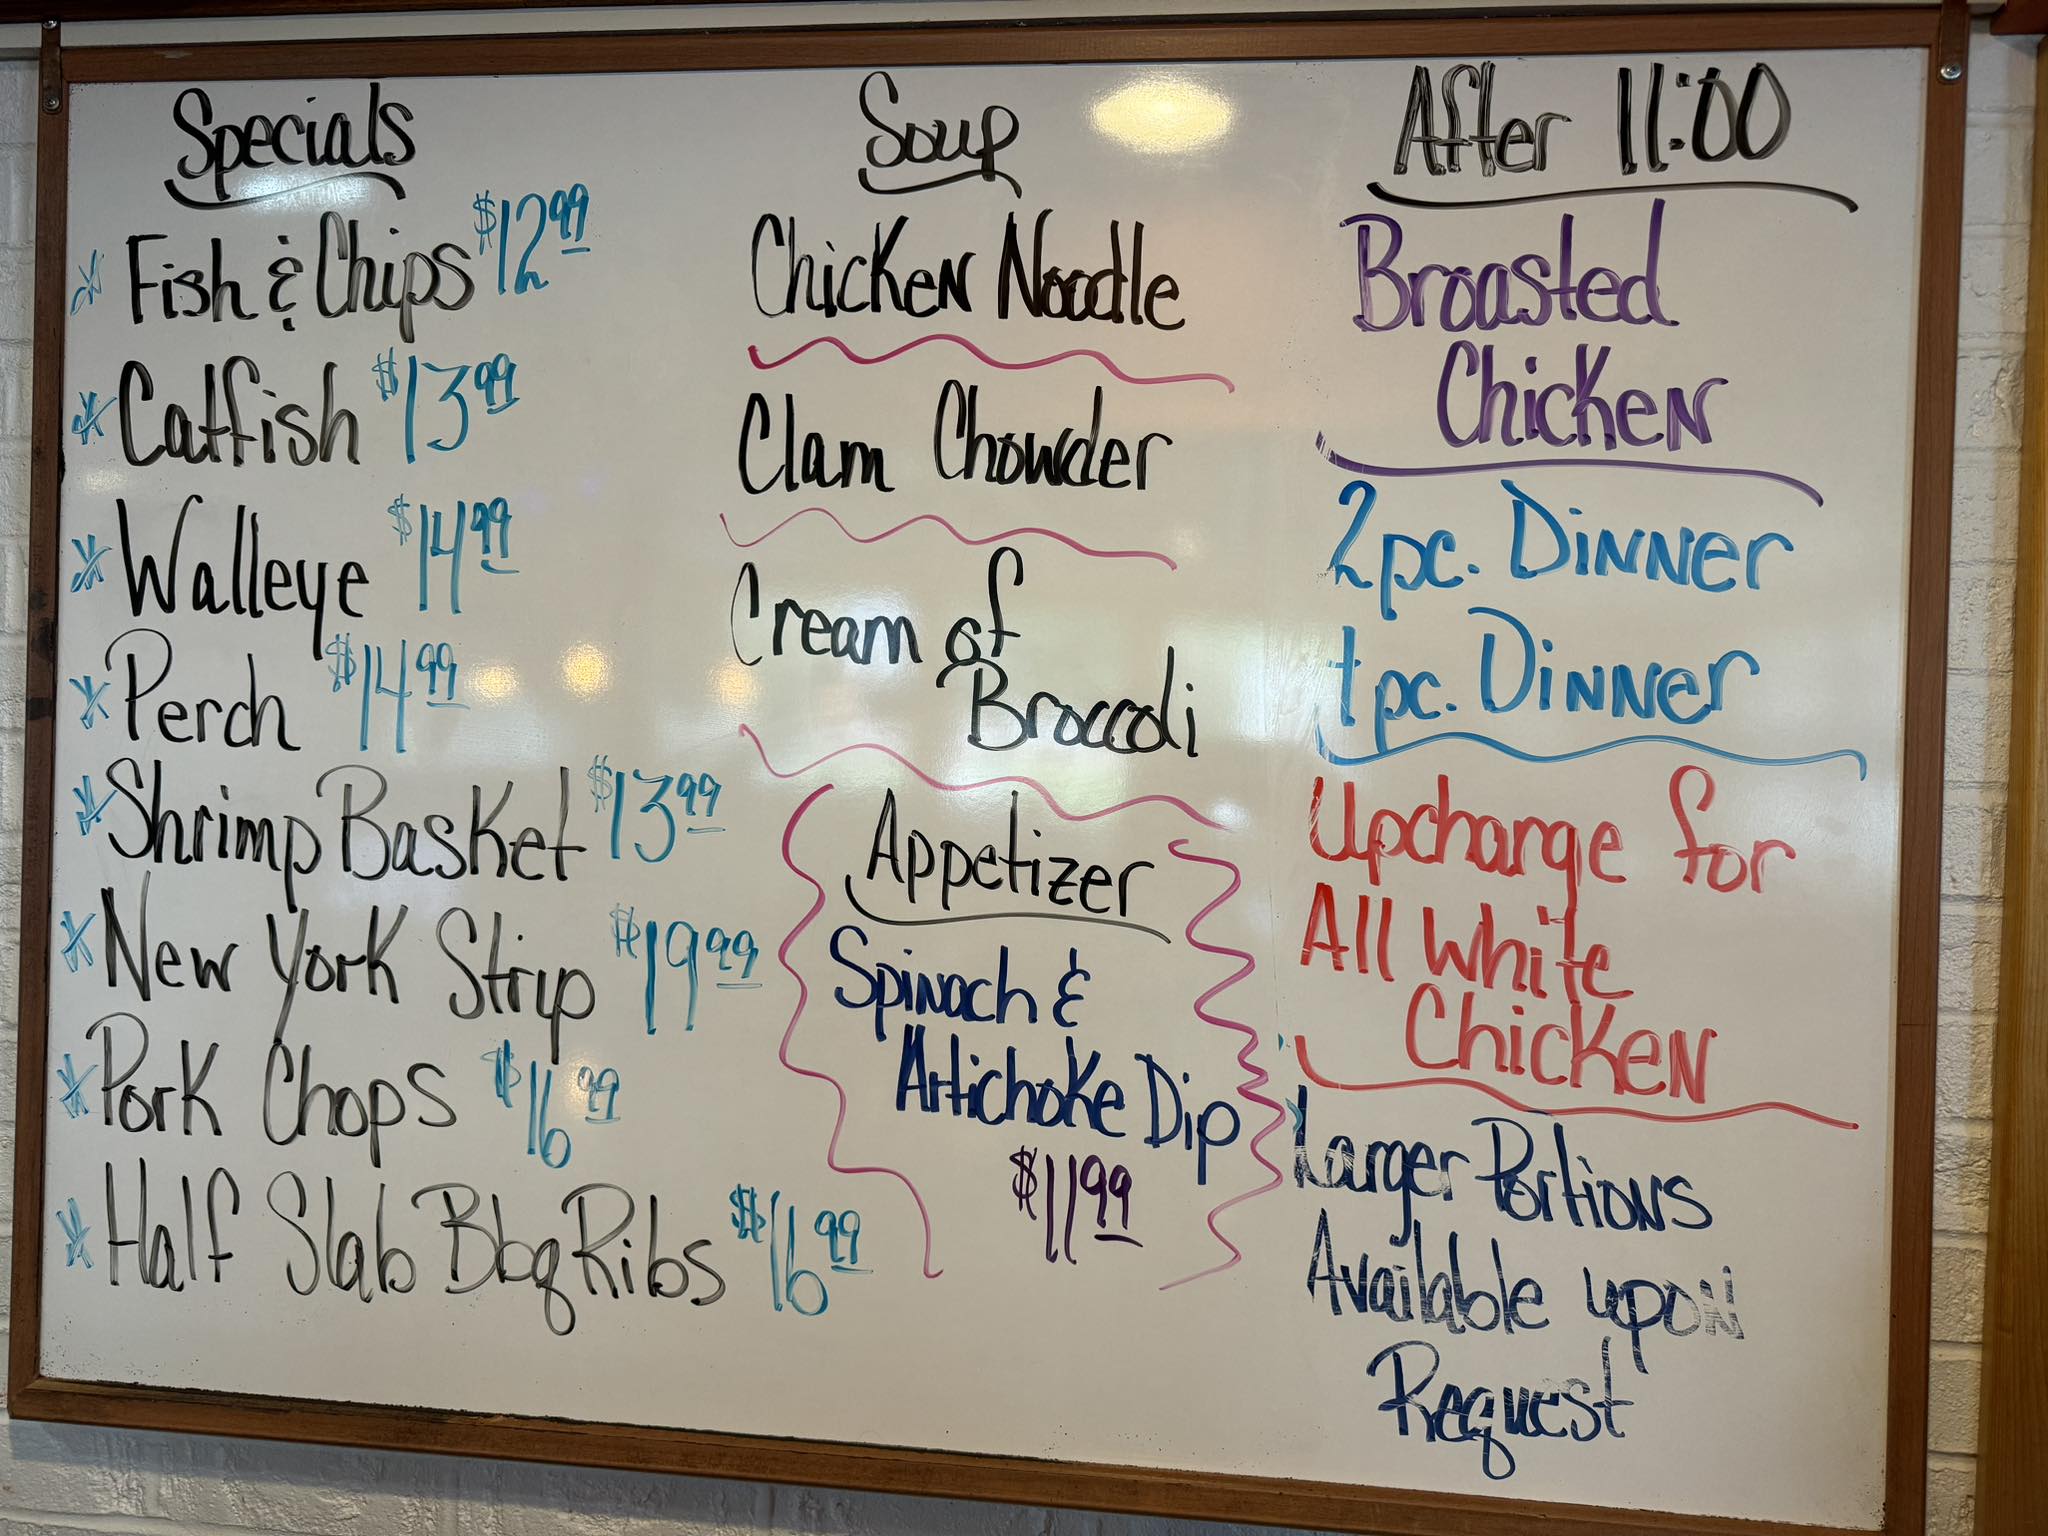 Specials
Fish & Chips $12.99
Catfish $13.99
Walleye $14.99
Perch $14.99
Shrimp Basket $13.99
New York Strip $19.99
Pork Chops $16.99
Half Slab Bbq Ribs $16.99
Soup
Chicken Noodle
Clam Chowder
Cream of
Broccoli
Appetizer
Spinach &
Artichoke Dip
$11.99
After 11:00
Broasted
Chicken
2pc. Dinner
1pc. Dinner
Upcharge for
All White
Chicken
Larger Portions
Available upon
Request